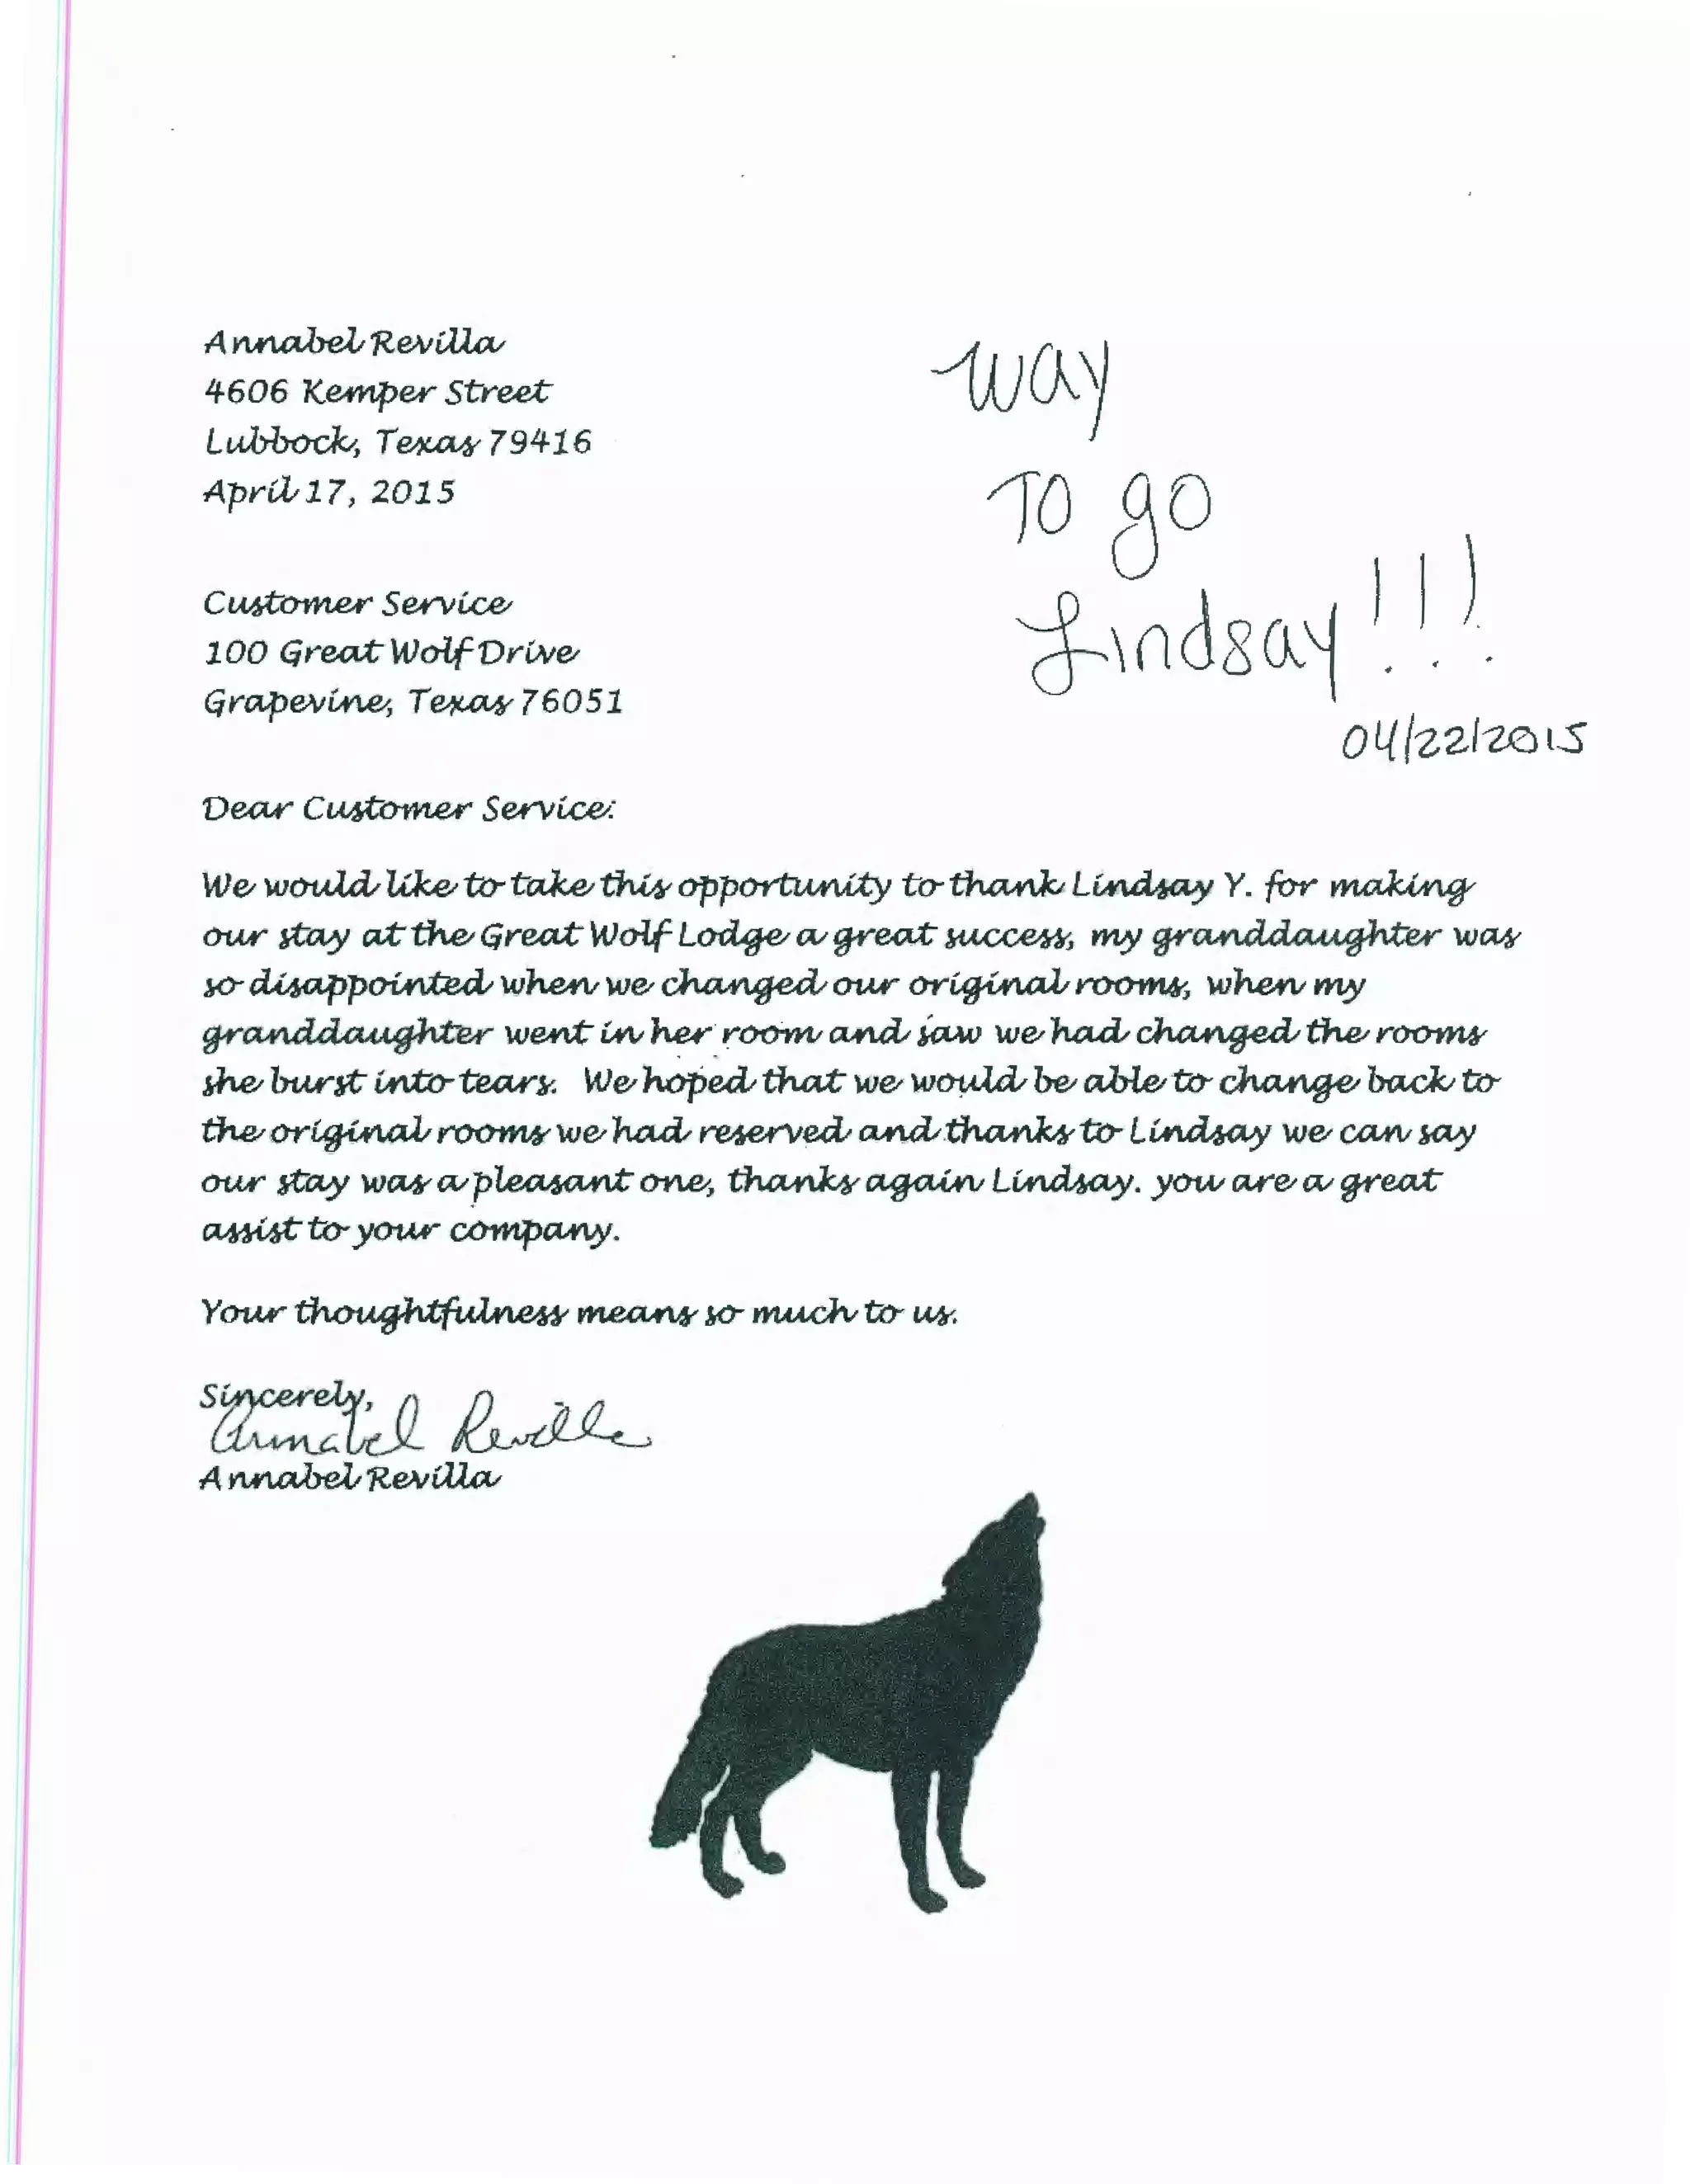 Annabel Revilla
4606 Kemper Street
Lubbock, Texas 79416
April 17, 2015
Way
To go
Lindsay!!!
04/22/2015
Customer Service
100 Great Wolf Drive
Grapevine, Texas 76051
Dear Customer Service:
We would like to take this opportunity to thank Lindsay Y. for making
our stay at the Great Wolf Lodge a great success, my granddaughter was
so disappointed when we changed our original rooms, when my
granddaughter went in her room and saw we had changed the rooms
she burst into tears. We hoped that we would be able to change back to
the original rooms we had reserved and thanks to Lindsay we can say
our stay was a pleasant one, thanks again Lindsay. you are a great
assist to your company.
Your thoughtfulness means so much to us.
Sincerely,
Annabel Revilla
Annabel Revilla